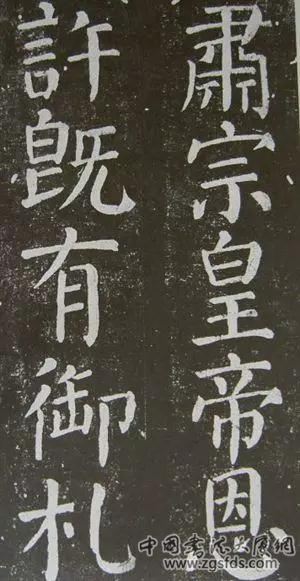 肅宗皇帝恩
許既有御札
中国书法发展网
www.zgsfds.com